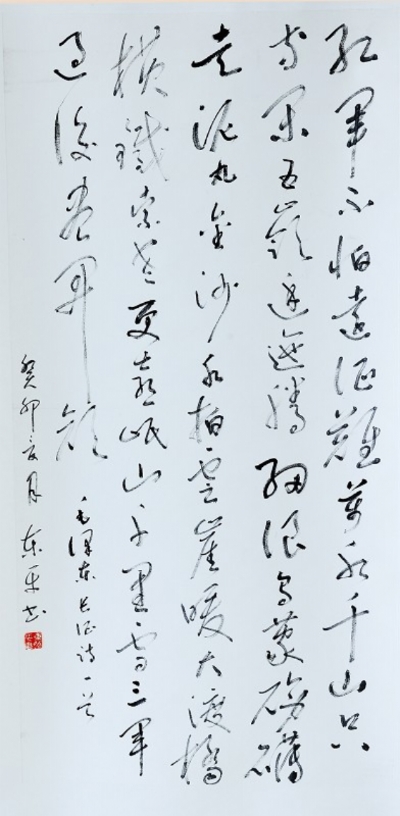 红军不怕遠征難萬水千山只
等闲五嶺逶迤腾细浪乌蒙磅礴
走泥丸金沙水拍雲崖暖大渡橋
横鐵索寒更喜岷山千里雪三军
过後尽开颜
毛泽东长征诗一首
癸卯亥月东平书